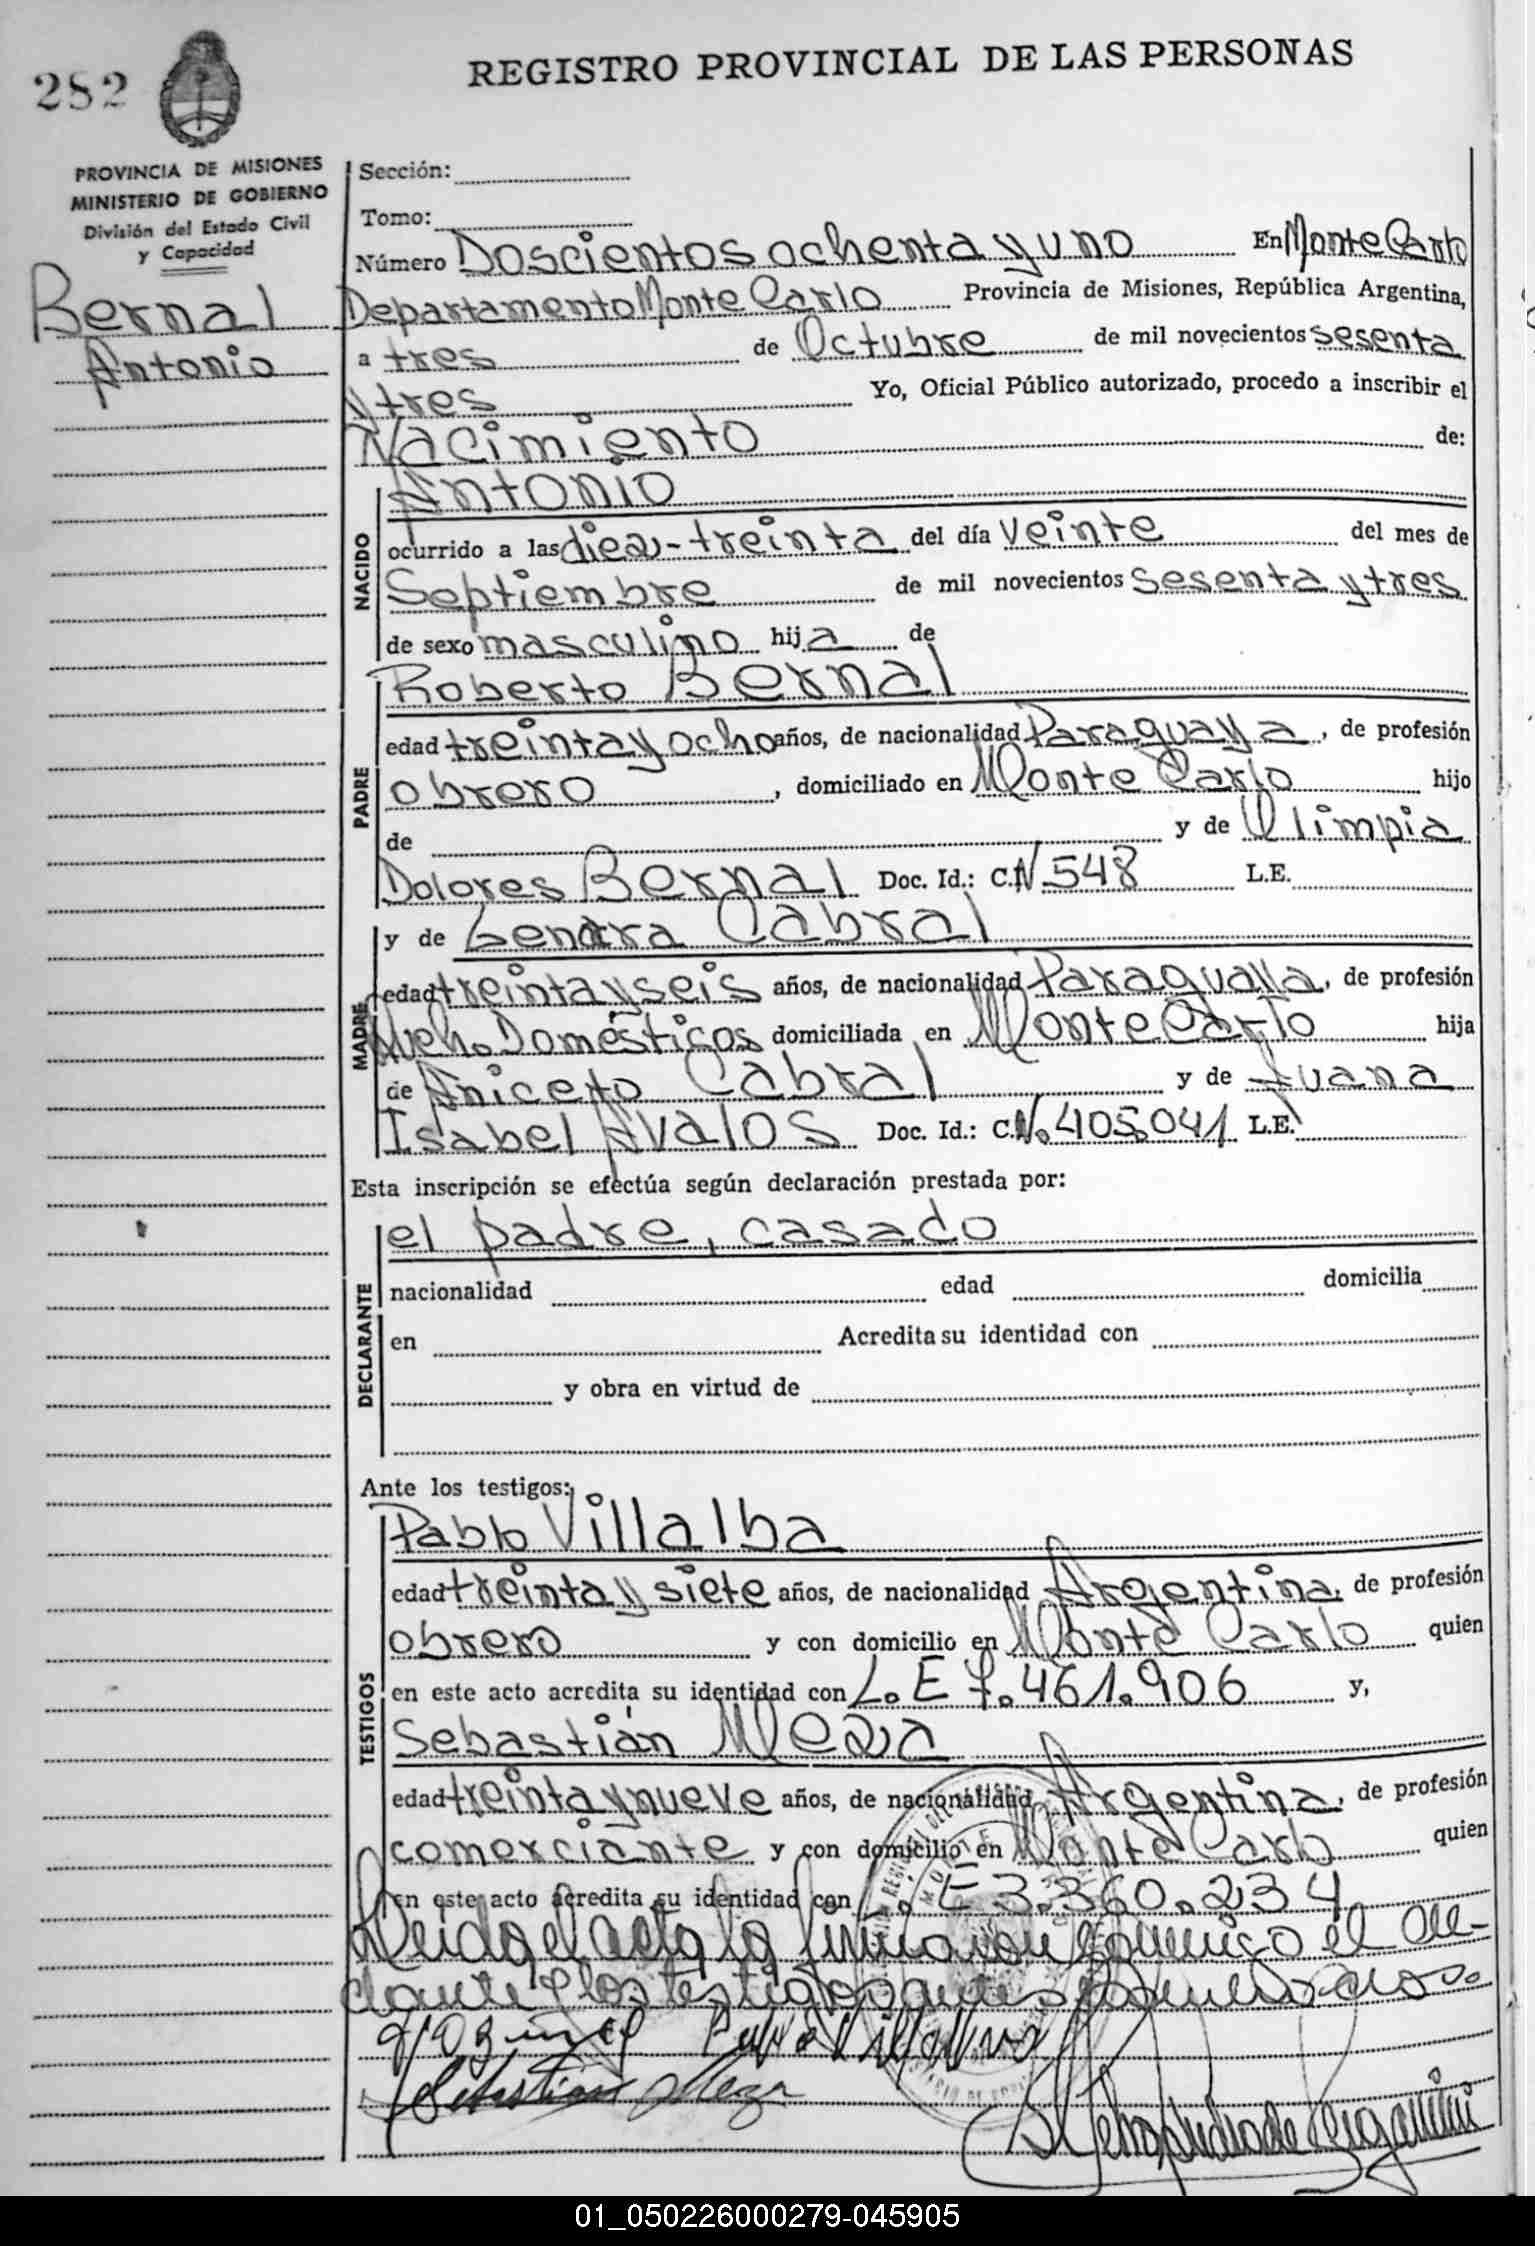 282
REGISTRO PROVINCIAL DE LAS PERSONAS
PROVINCIA DE MISIONES
MINISTERIO DE GOBIERNO
División del Estado Civil
y Capacidad
Bernal
Antonio
Sección:
Tomo:
Número Doscientos ochenta y uno En Monte Carlo
Departamento Monte Carlo Provincia de Misiones, República Argentina,
a tres de Octubre de mil novecientos sesenta
y tres Yo, Oficial Público autorizado, procedo a inscribir el
Nacimiento de:
NACIDO
Antonio
ocurrido a las diez-treinta del día veinte del mes de
Septiembre de mil novecientos sesenta y tres
de sexo masculino hija de
PADRE
Roberto Bernal
edad treinta y ocho años, de nacionalidad Paraguaya, de profesión
obrero, domiciliado en Monte Carlo hijo
de y de Olimpia
Dolores Bernal Doc. Id.: C.N 548 L.E.
MADRE
y de Cabral
edad treinta y seis años, de nacionalidad Paraguaya, de profesión
Queh. Domésticos domiciliada en Monte Carlo hija
de Aniceto Cabral y de Juana
Isabel Avalos Doc. Id.: C.N. 405.041 L.E.
Esta inscripción se efectúa según declaración prestada por:
DECLARANTE
el padre, casado
nacionalidad edad domicilia
en Acredita su identidad con
y obra en virtud de
Ante los testigos:
TESTIGOS
Pablo Villalba
edad treinta y siete años, de nacionalidad Argentina, de profesión
obrero y con domicilio en Monte Carlo quien
en este acto acredita su identidad con L.E 7.461.906 y,
Sebastián Meza
edad treinta y nueve años, de nacionalidad Argentina, de profesión
comerciante y con domicilio en Monte Carlo quien
en este acto acredita su identidad con L.E 3.360.234
Leida el acta la firmaron conmigo el de-
clarante y los testigos antes nombrados.
Pablo Villalba
Sebastian Meza
01_050226000279-045905